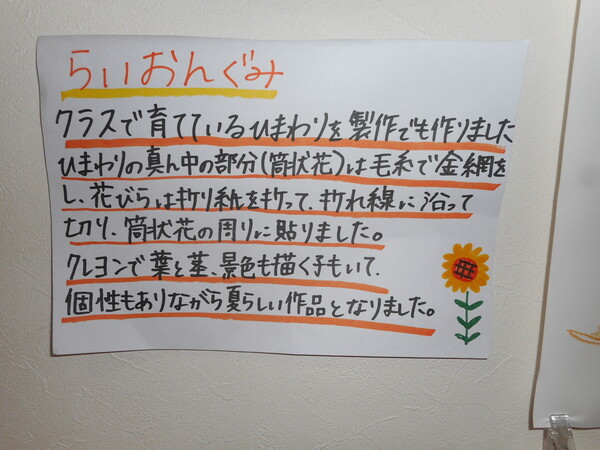 らいおんぐみ
クラスで育てているひまわりを製作でも作りました
ひまわりの真ん中の部分(筒状花)は毛糸で金網を
し、花びらは折り紙を折って、折れ線に沿って
切り、筒状花の周りに貼りました。
クレヨンで葉と茎、景色も描く子もいて、
個性もありながら夏らしい作品となりました。